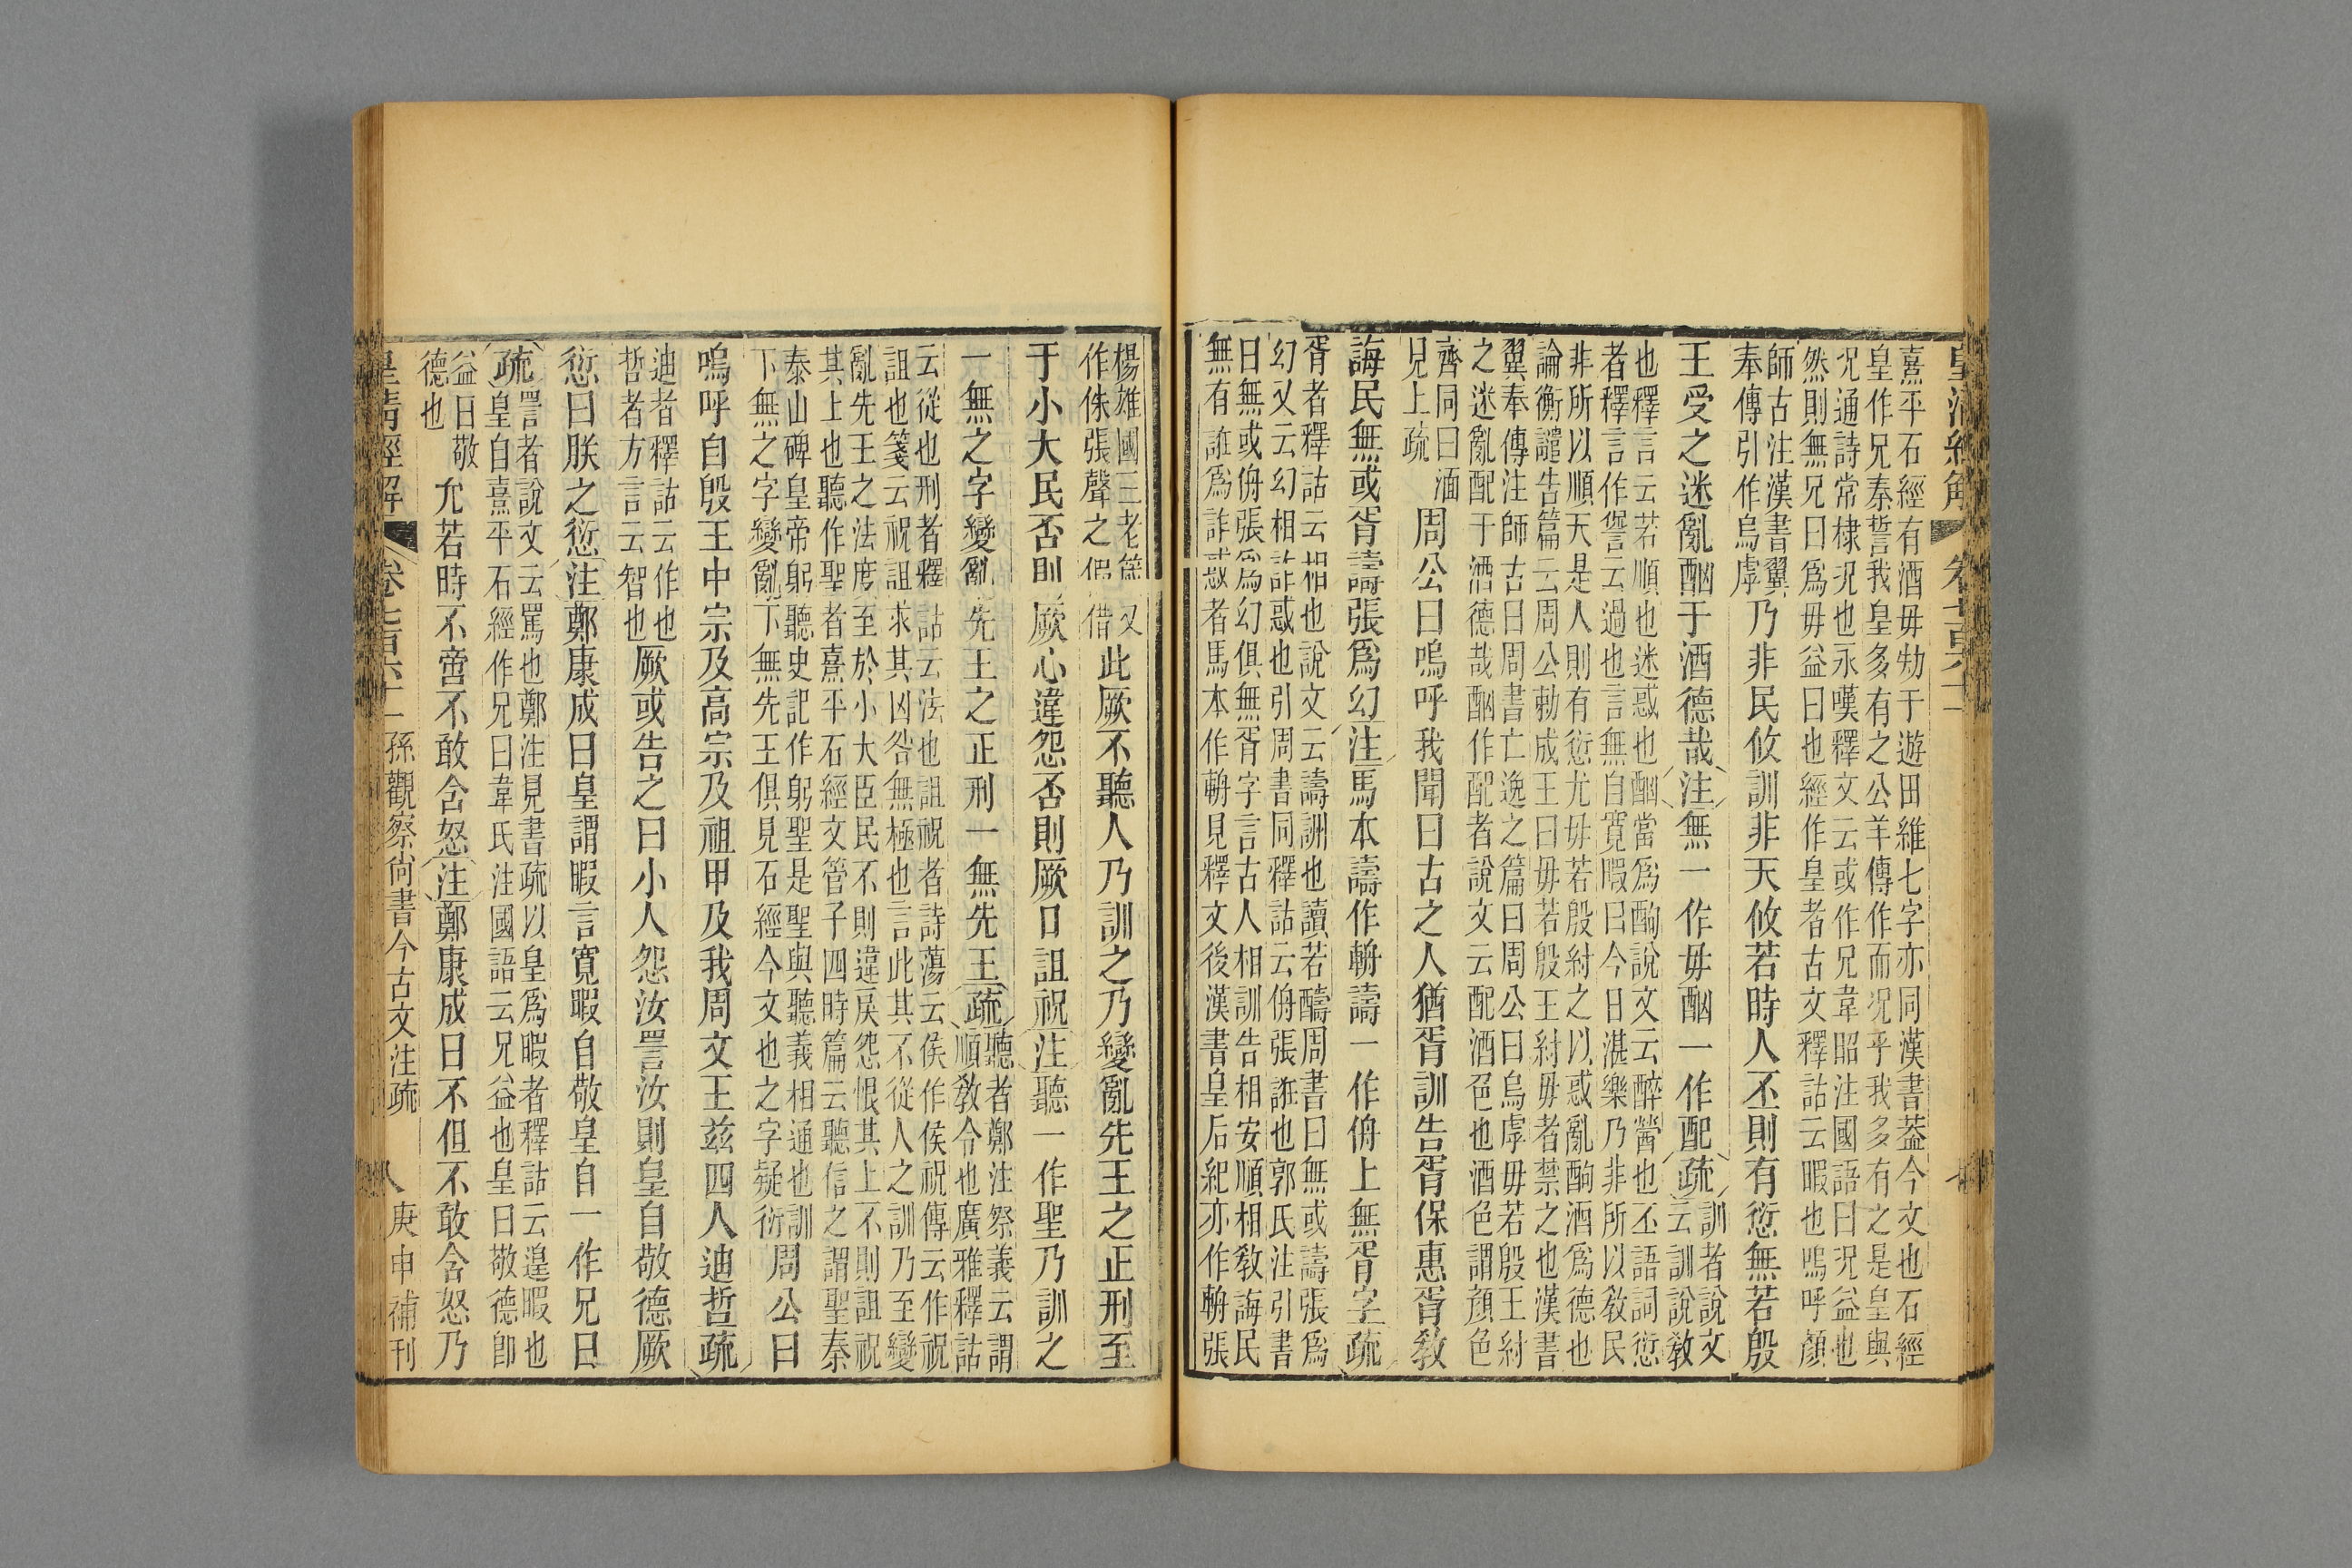 皇清經解 卷七百六十一
熹平石經有酒毋劮于遊田維七字亦同漢書葢今文也石經
皇作兄秦誓我皇多有之公羊傳作而况乎我多有之是皇與
况通詩常棣况也永嘆釋文云或作兄韋昭注國語曰况益也
然則無兄曰爲毋益曰也經作皇者古文釋詁云暇也嗚呼顏
師古注漢書翼
奉傳引作烏虖
乃非民攸訓非天攸若時人丕則有愆無若殷
王受之迷亂酗于酒德哉注無一作毋酗一作配疏
訓者說文
云訓說敎
也釋言云若順也迷惑也酗當爲酌說文云醉醟也丕語詞愆
者釋言作諐云過也言無自寬暇曰今日湛樂乃非所以敎民
非所以順天是人則有愆尤毋若殷紂之以惑亂酌酒爲德也
論衡譴告篇云周公勅成王曰毋若殷王紂毋者禁之也漢書
翼奉傳注師古曰周書亡逸之篇曰周公曰烏虖毋若殷王紂
之迷亂配于酒德哉酗作配者說文云配酒色也酒色謂顏色
齊同曰湎
見上疏
周公曰嗚呼我聞曰古之人猶胥訓告胥保惠胥敎
誨民無或胥譸張爲幻注馬本譸作輈譸一作侜上無胥字疏
胥者釋詁云相也說文云譸詶也讀若醻周書曰無或譸張爲
幻又云幻相詐惑也引周書同釋詁云侜張誑也郭氏注引書
曰無或侜張爲幻俱無胥字言古人相訓告相安順相敎誨民
無有誑爲詐惑者馬本作輈見釋文後漢書皇后紀亦作輈張
楊雄國三老箴又
作侏張聲之假借
此厥不聽人乃訓之乃變亂先王之正刑至
于小大民否則厥心違怨否則厥口詛祝注聽一作聖乃訓之
一無之字變亂先王之正刑一無先王疏
聽者鄭注祭義云謂
順敎令也廣雅釋詁
云從也刑者釋詁云法也詛祝者詩蕩云侯作侯祝傳云作祝
詛也箋云祝詛求其凶咎無極也言此其不從人之訓乃至變
亂先王之法度至於小大臣民不則違戾怨恨其上不則詛祝
其上也聽作聖者熹平石經文管子四時篇云聽信之謂聖秦
泰山碑皇帝躬聽史記作躬聖是聖與聽義相通也訓
下無之字變亂下無先王俱見石經今文也之字疑衍
周公曰
嗚呼自殷王中宗及高宗及祖甲及我周文王兹四人迪哲疏
迪者釋詁云作也
哲者方言云智也
厥或告之曰小人怨汝詈汝則皇自敬德厥
愆曰朕之愆注鄭康成曰皇謂暇言寬暇自敬皇自一作兄曰
疏
詈者說文云罵也鄭注見書疏以皇爲暇者釋詁云遑暇也
皇自熹平石經作兄曰韋氏注國語云兄益也皇曰敬德卽
益曰敬
德也
允若時不啻不敢含怒注鄭康成曰不但不敢含怒乃
皇清經解 卷七百六十一 孫觀察尚書今古文注疏 八 庚申補刊